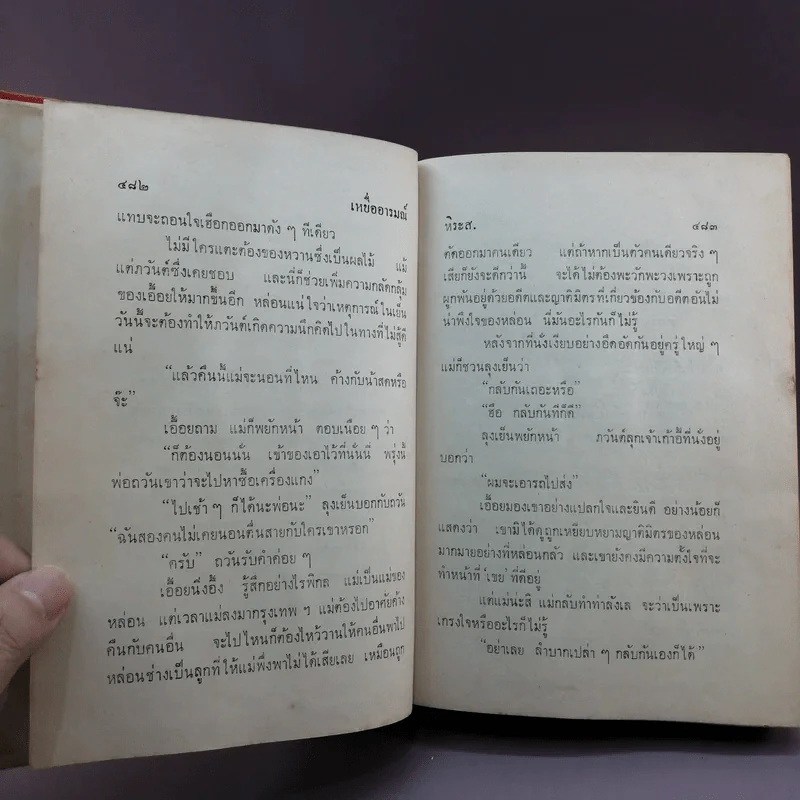 ๔๘๒
เหยื่ออารมณ์
แทบจะถอนใจเฮือกออกมาดัง ๆ ทีเดียว
ไม่มีใครแตะต้องของหวานซึ่งเป็นผลไม้ แม้
แต่ภวันต์ซึ่งเคยชอบ และนี่ก็ช่วยเพิ่มความกลัดกลุ้ม
ของเอื้อยให้มากขึ้นอีก หล่อนแน่ใจว่าเหตุการณ์ในเย็น
วันนี้จะต้องทำให้ภวันต์เกิดความนึกคิดไปในทางที่ไม่สู้ดี
แน่
“แล้วคืนนี้แม่จะนอนที่ไหน ค้างกับน้าสดหรือ
จ๊ะ”
เอื้อยถาม แม่ก็พยักหน้า ตอบเนือย ๆ ว่า
“ก็ต้องนอนนั่น เข้าของเอาไว้ที่นั่นนี่ พรุ่งนี้
พ่อถวันเขาว่าจะไปหาซื้อเครื่องแกง”
“ไปเช้า ๆ ก็ได้นะพ่อนะ” ลุงเย็นบอกกับถวัน
“ฉันสองคนไม่เคยนอนตื่นสายกับใครเขาหรอก”
“ครับ” ถวันรับคำค่อย ๆ
เอื้อยนิ่งอึ้ง รู้สึกอย่างไรพิกล แม่เป็นแม่ของ
หล่อน แต่เวลาแม่ลงมากรุงเทพ ฯ แม่ต้องไปอาศัยค้าง
คืนกับคนอื่น จะไปไหนก็ต้องไหว้วานให้คนอื่นพาไป
หล่อนช่างเป็นลูกที่ให้แม่พึ่งพาไม่ได้เสียเลย เหมือนถูก
ทิระส.
๔๘๓
ตัดออกมาคนเดียว แต่ถ้าหากเป็นตัวคนเดียวจริง ๆ
เสียก็ยังจะดีกว่านี้ จะได้ไม่ต้องพะวักพะวงเพราะถูก
ผูกพันอยู่ด้วยอดีตและญาติมิตรที่เกี่ยวข้องกับอดีตอันไม่
น่าพึงใจของหล่อน นี่มันอะไรกันก็ไม่รู้
หลังจากที่นั่งเงียบอย่างอึดอัดกันอยู่ครู่ใหญ่ ๆ
แม่ก็ชวนลุงเย็นว่า
“กลับกันเถอะหรือ”
“ฮือ กลับกันทีก็ดี”
ลุงเย็นพยักหน้า ภวันต์ลุกเจ้าเก้าอี้ที่นั่งอยู่
บอกว่า
“ผมจะเอารถไปส่ง”
เอื้อยมองเขาอย่างแปลกใจและยินดี อย่างน้อยก็
แสดงว่า เขามิได้ดูถูกเหยียบหยามญาติมิตรของหล่อน
มากมายอย่างที่หล่อนกลัว และเขายังคงมีความตั้งใจที่จะ
ทำหน้าที่ ‘เขย’ ที่ดีอยู่
แต่แม่น่ะสิ แม่กลับทำท่าลังเล จะว่าเป็นเพราะ
เกรงใจหรืออะไรก็ไม่รู้
“อย่าเลย ลำบากเปล่า ๆ กลับกันเองก็ได้”